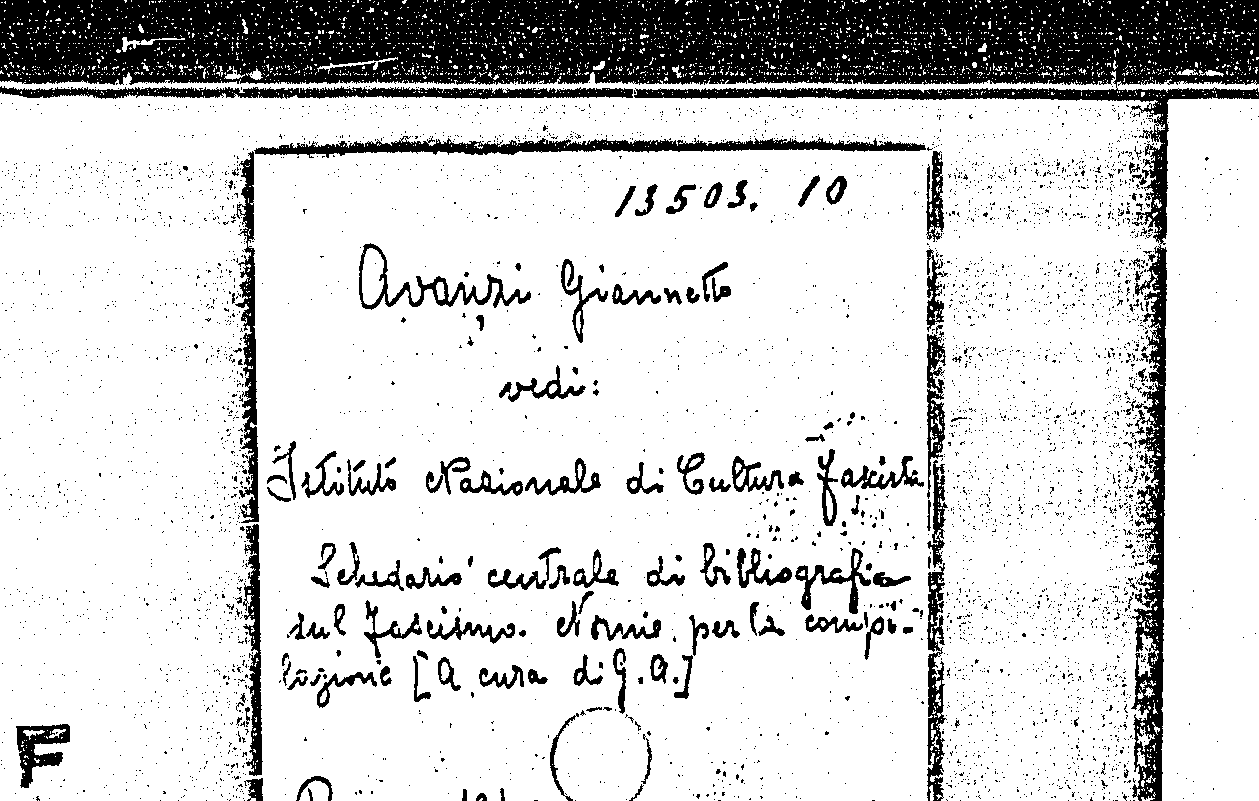 13503. 10
Avanzi Giannetto
vedi:
Istituto Nazionale di Cultura Fascista
Schedario centrale di bibliografia
sul Fascismo. Norme per la compi-
lazione [A cura di G. A.]
F